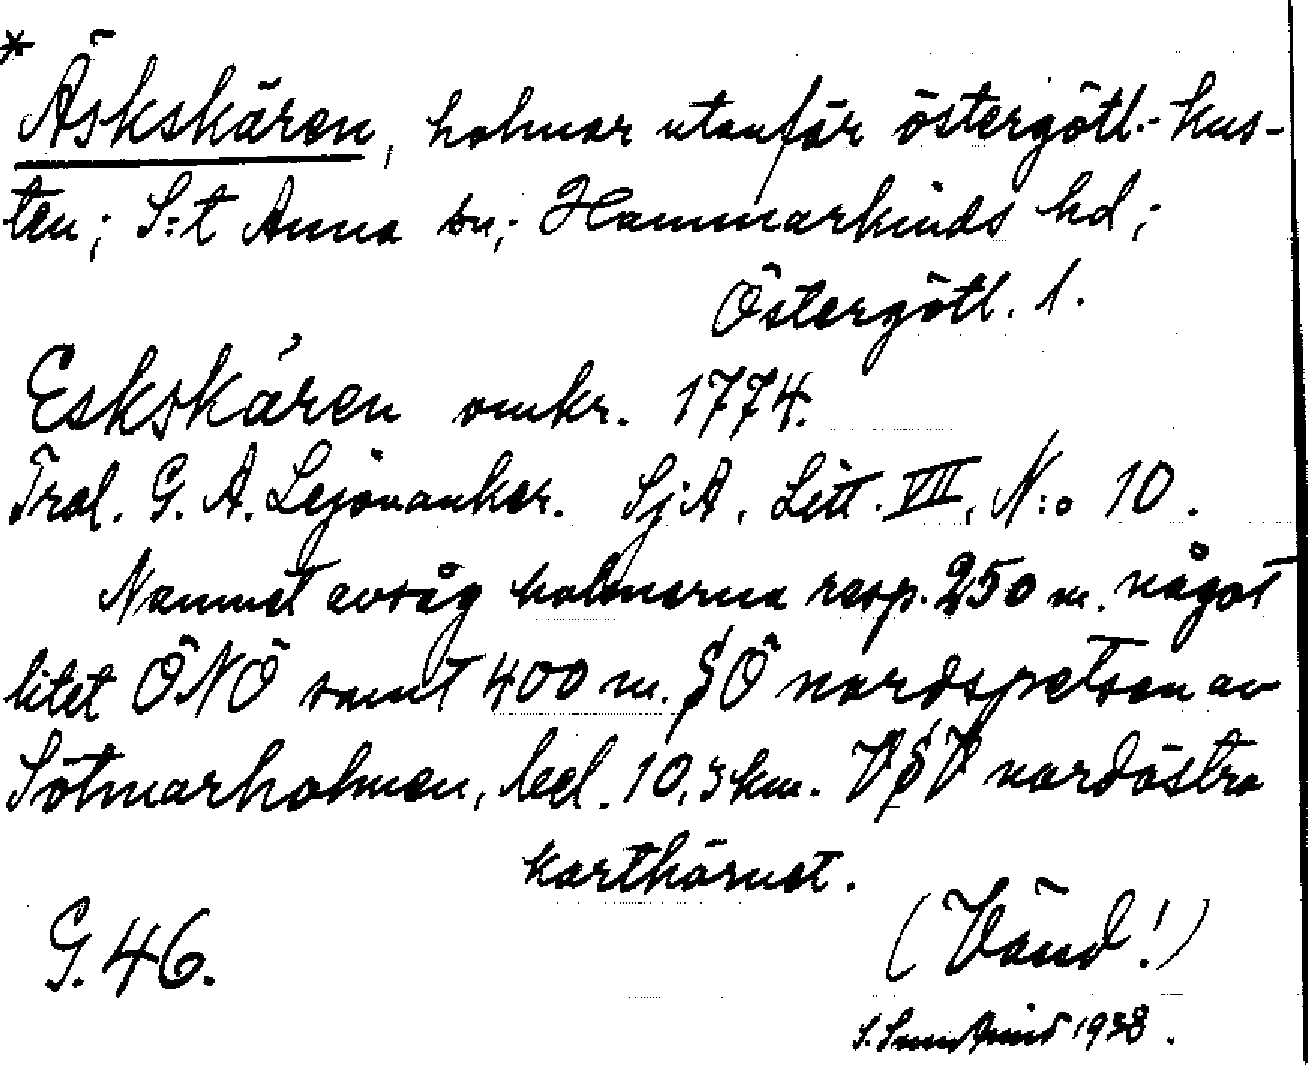 * Äskskären, holmar utanför östergötl.- kus-
ten; S:t Anna sn.; Hammarkinds hd;
Östergötl. l.
Eskskären omkr. 1774.
Trol. G. A. Lejonanker. SjA, Litt. VII, N:o 10.
Namnet avsåg holmarna resp. 250 m. något
litet ÖNÖ samt 400 m. SÖ nordspetsen av
Sötmarholmen, bel. 10,3 km. VSV nordöstra
karthörnet.
(Vänd!)
G. 46.
1938.